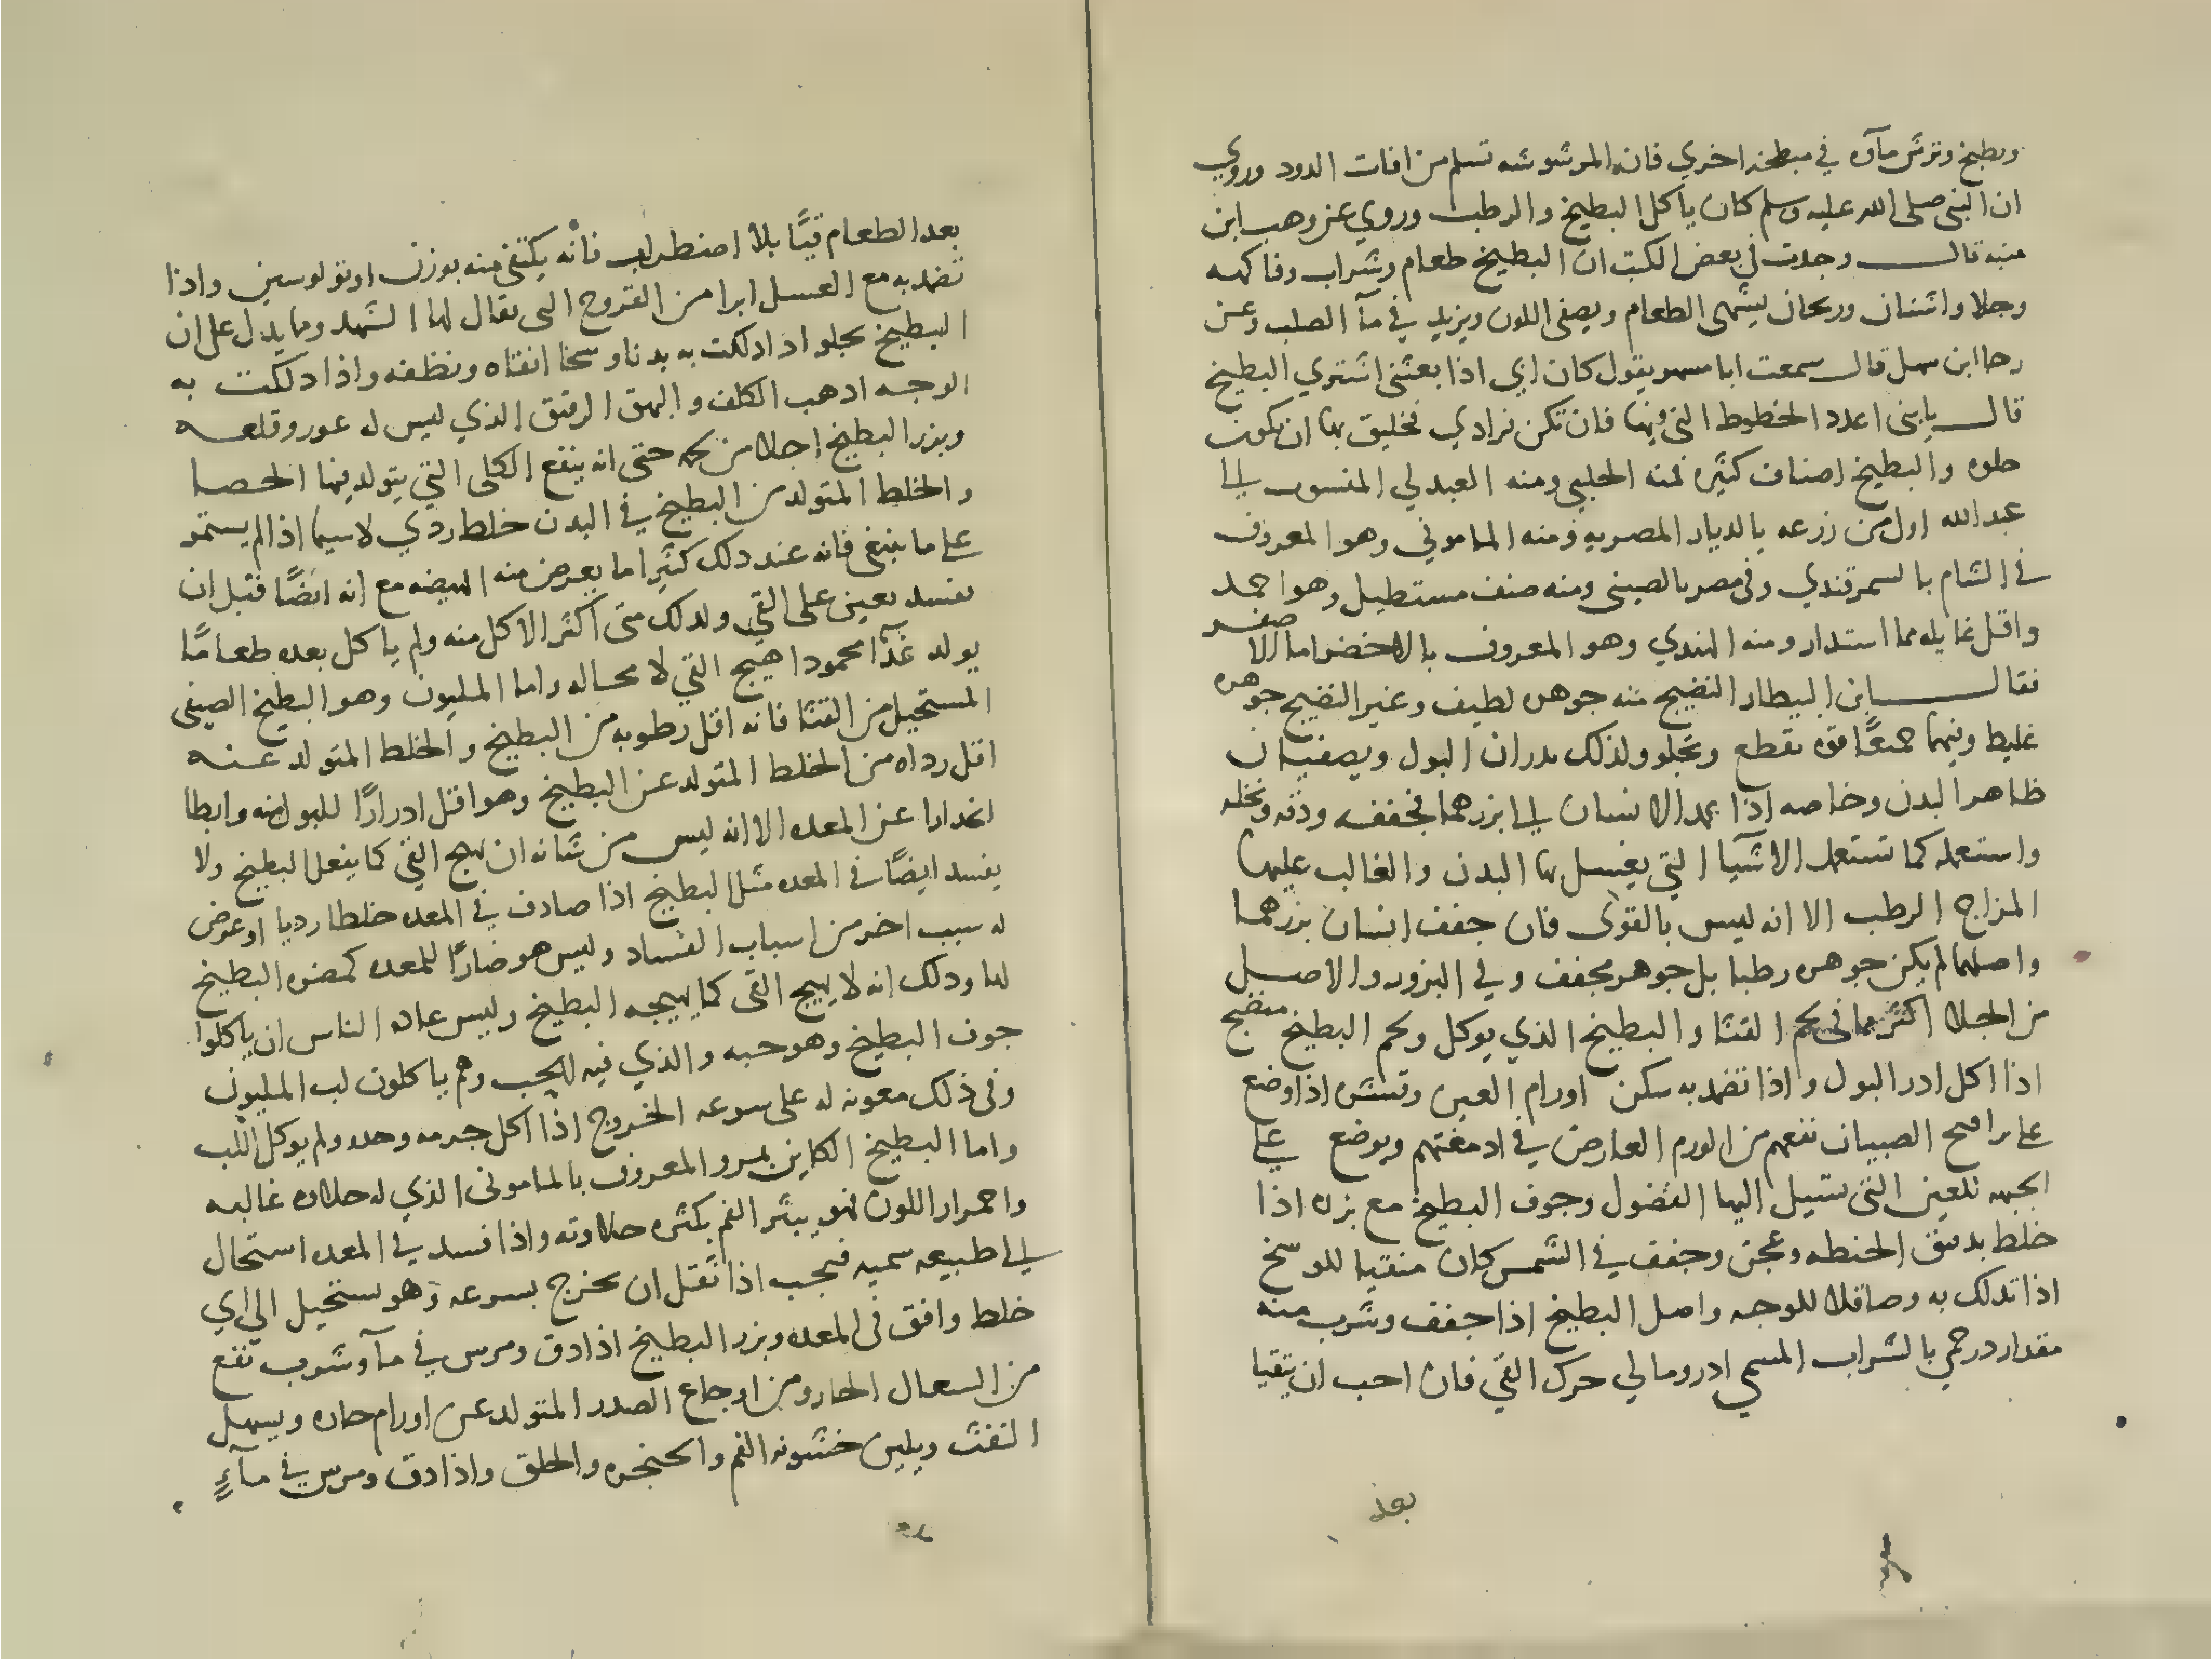 وبطيخ وترش ماؤه في مبطخه اخري فان المرشوشه تسلم من افات الدود وروي
ان النبى صلى الله عليه وسلم كان ياكل البطيخ والرطب وروي عن وهب ابن
منبه قال وجدت في بعض الكتب ان البطيخ طعام وشراب وفاكهه
وجلا واشنان وريحان يشهى الطعام ويصفى اللون ويزيد في مآ الصلب وعن
رجا ابن سهل قال سمعت ابا مسهر يقول كان ابي اذا بعثنى اشتري البطيخ
قال يا بنى اعدد الخطوط التى فيها فان تكن فرادي فخليق بها ان تكون
حلوه والبطيخ اصناف كثيره فمنه الحلبى ومنه العبدلي المنسوب الى
عبد الله اول من زرعه بالديار المصريه ومنه المامونى وهو المعروف
فى الشام بالسمرقندي وفى مصر بالصينى ومنه صنف مستطيل وهو احمد
واقل غايله مما استدار ومنه الهندي وهو المعروف بالاخضر اما الاصفر
فقال ابن البيطار النضيج منه جوهره لطيف وغير النضيج جوهره
غليظ وفيهما جميعًا قوه تقطع وتجلو ولذلك يدران البول ويصفيان
ظاهر البدن وخاصه اذا عمد الانسان الى بزرهما فجففه ودقه ونخله
واستعمله كما تستعمل الاشيا التي يغسل بها البدن والغالب عليهما
المزاج الرطب الا انه ليس بالقوى فان جفف انسان بزرهما
واصلهما لم يكن جوهره رطبا بل جوهر مجفف وفي البزور والاصل
من الجلا اكثر مما فى لحم القثا والبطيخ الذي يوكل ولحم البطيخ منضج
اذا اكل ادر البول واذا تضمد به سكن اورام العين وقشره اذا وضع
على يوافيخ الصبيان نفعهم من الورم العارض في ادمغتهم ويوضع على
الجبهه للعين التى تسيل اليها الفضول وجوف البطيخ مع بزره اذا
خلط بدقيق الحنطه وعجن وجفف في الشمس كان منقيا للوسخ
اذا تدلك به وصاقلا للوجه واصل البطيخ اذا جفف وشرب منه
مقدار درخمي بالشراب المسمي ادرومالي حرك القي فان احب ان يتقيا
بعد
بعد الطعام قيًا بلا اضطراب فانه يكتفى منه بوزن اوثولوسين واذا
تضمد به مع العسل ابرا من القروح التى يقال لها الشهد ومما يدل على ان
البطيخ يجلو اذا دلكت به بدنا وسخا انقاه ونظفه واذا دلكت به
الوجه اذهب الكلف والبهق الرقيق الذي ليس له غور وقلعه
وبزر البطيخ اجلا من لحمه حتى انه ينفع الكلى التي يتولد فيها الحصا
والخلط المتولد من البطيخ في البدن خلط ردي لاسيما اذا لم يستمر
على ما ينبغى فانه عند ذلك كثيرا ما يعرض منه الهيضه مع انه ايضًا قبل ان
يفسد يعين على القي ولذلك متى اكثر الاكل منه ولم ياكل بعده طعامًا
يولد غذآ محمودا هيج القي لا محاله واما المليون وهو البطيخ الصيفى
المستحيل من القثا فانه اقل رطوبه من البطيخ والخلط المتولد عنه
اقل رداه من الخلط المتولد عن البطيخ وهو اقل ادرارًا للبول منه وابطا
انحدارا عن المعده الا انه ليس من شانه ان يهيج القي كما يفعل البطيخ ولا
يفسد ايضًا في المعده مثل البطيخ اذا صادف في المعده خلطا رديا او عرض
له سبب اخر من اسباب الفساد وليس هو ضارًا للمعده كمضره البطيخ
لها وذلك انه لا يهيج القى كما يهيجه البطيخ وليس عاده الناس ان ياكلوا
جوف البطيخ وهو حبه والذي فيه الحب وهم ياكلون لب المليون
وفى ذلك معونه له على سرعه الخروج اذا اكل جرمه وحده ولم يوكل اللب
واما البطيخ الكاين بمرو المعروف بالمامونى الذي له حلاوه غالبه
واحمرار اللون فهو يبثر الفم بكثره حلاوته واذا فسد في المعده استحال
الى طبيعه سميه فيجب اذا ثقل ان يخرج بسرعه وهو يستحيل الى اي
خلط وافق فى المعده وبزر البطيخ اذا دق ومرس في مآ وشرب نفع
من السعال الحار ومن اوجاع الصدر المتولد عن اورام حاره ويسهل
النفث ويلين خشونه الفم والحنجره والحلق واذا دق ومرس في مآءٍ